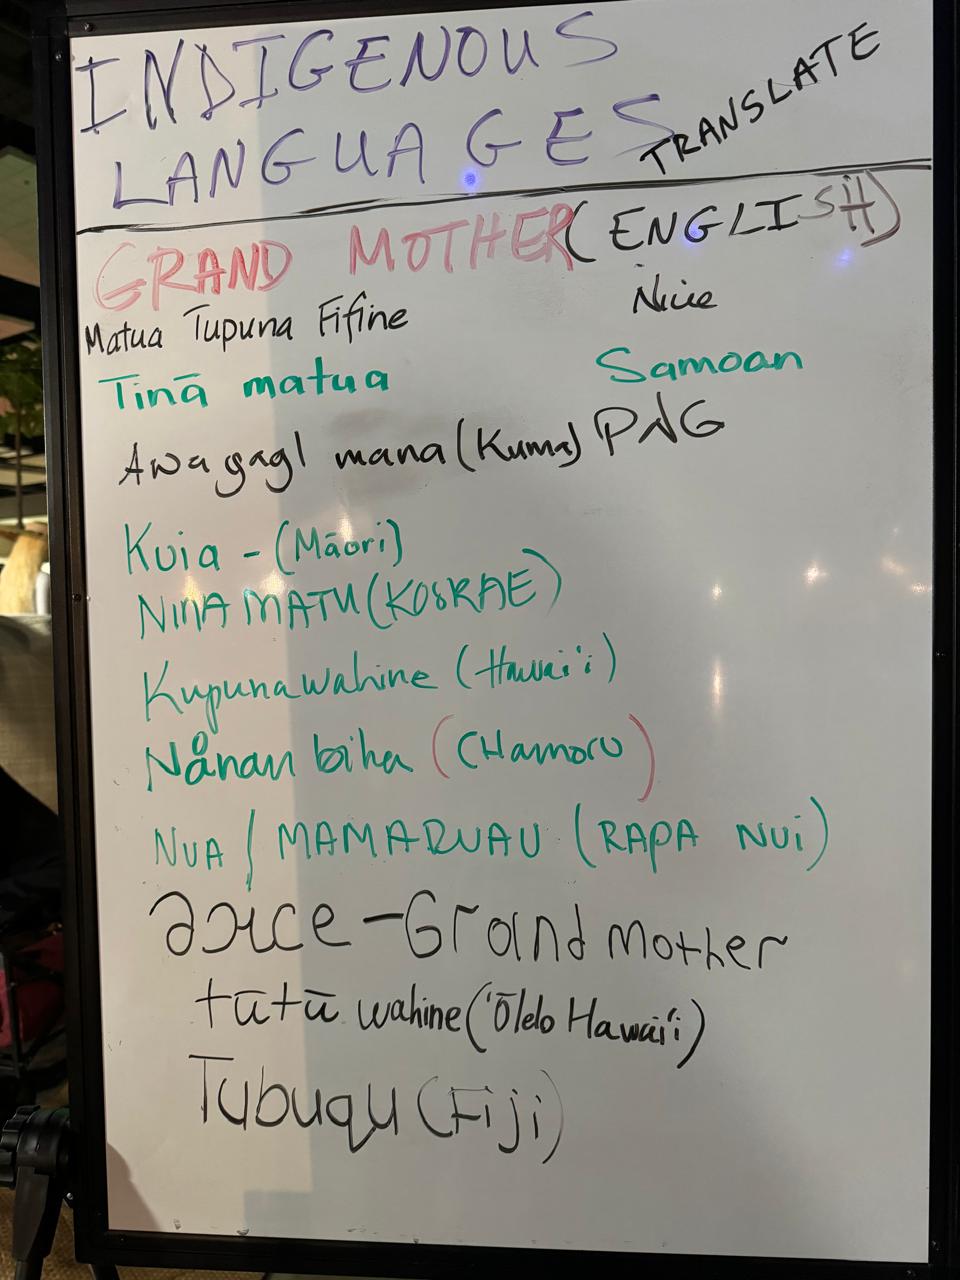 INDIGENOUS
LANGUAGES TRANSLATE
GRAND MOTHER (ENGLISH)
Matua Tupuna Fifine Niue
Tinā matua Samoan
Awa gagl mana (Kuma) PNG
Kuia - (Māori)
NINA MATU (KOSRAE)
Kupunawahine (Hawai'i)
Nånan biha (CHamoru)
NUA / MAMARUAU (RAPA NUI)
- Grand mother
tūtū wahine ('Ōlelo Hawai'i)
Tubuqu (Fiji)